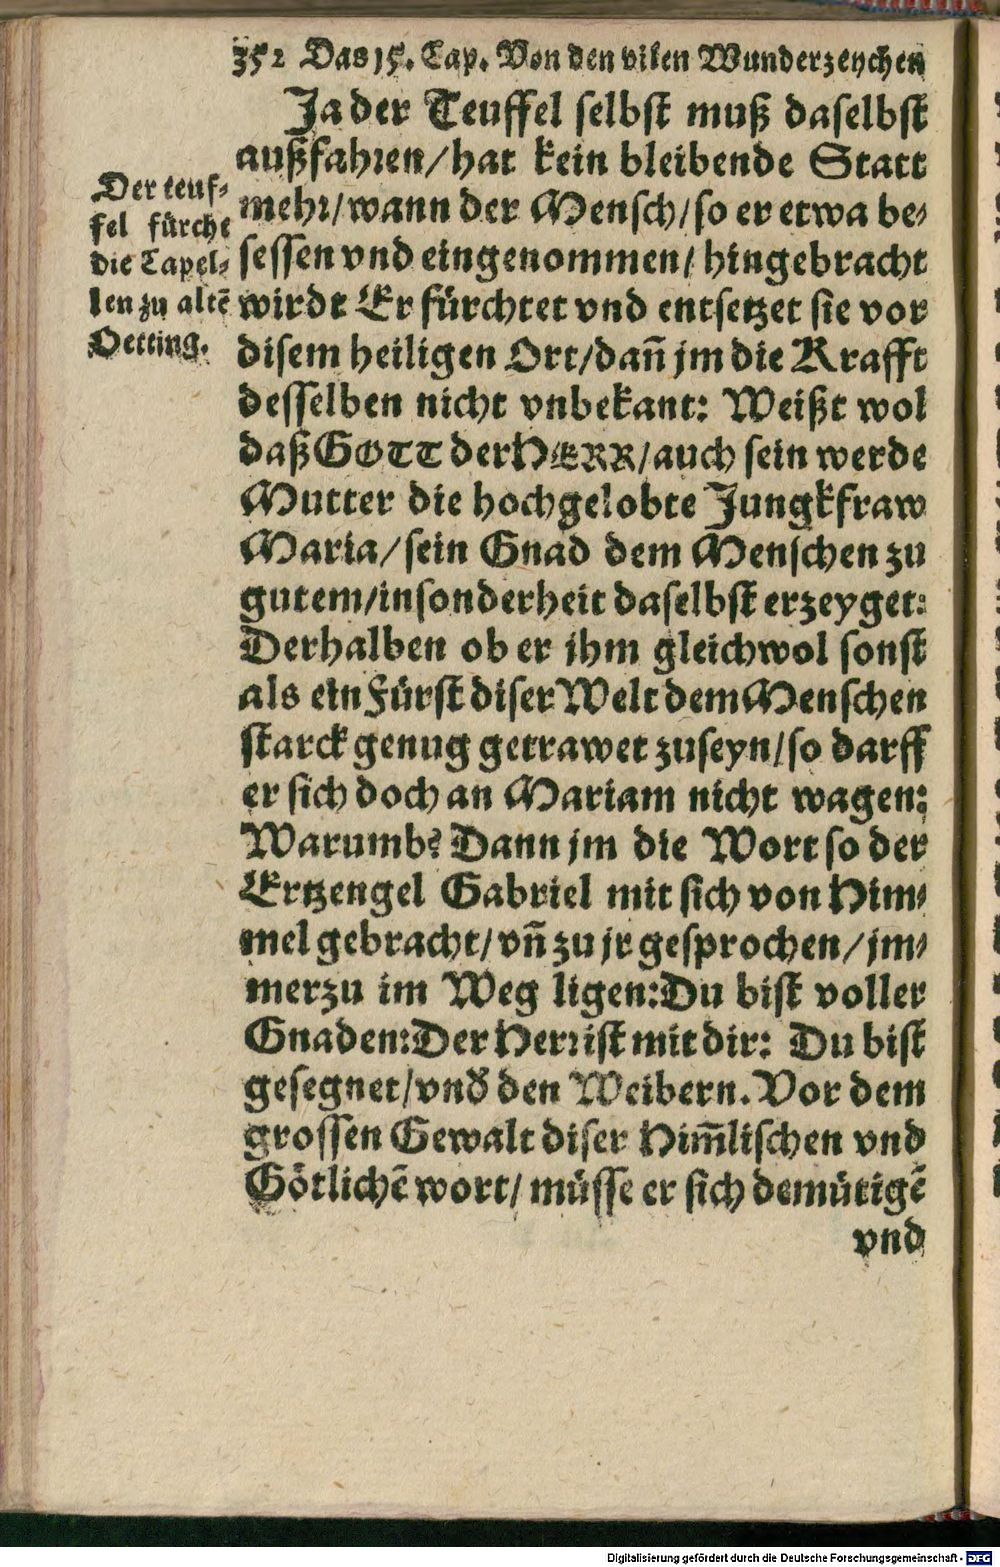 352 Das 15. Cap. Von den vilen Wunderzeychen
Ja der Teuffel selbst muß daselbst
außfahren/hat kein bleibende Statt
mehr/wann der Mensch/so er etwa be-
sessen vnd eingenommen/hingebracht
wirdt Er fürchtet vnd entsetzet sie vor
disem heiligen Ort/dañ jm die Krafft
desselben nicht vnbekant: Weißt wol
daß GOTT der HERR/auch sein werde
Mutter die hochgelobte Jungkfraw
Maria/sein Gnad dem Menschen zu
gutem/insonderheit daselbst erzeyget:
Derhalben ob er jhm gleichwol sonst
als ein Fürst diser Welt dem Menschen
starck genug getrawet zuseyn/so darff
er sich doch an Mariam nicht wagen:
Warumb? Dann jm die Wort so der
Ertzengel Gabriel mit sich von Him-
mel gebracht/vñ zu jr gesprochen/jm-
merzu im Weg ligen: Du bist voller
Gnaden: Der Herr ist mit dir: Du bist
gesegnet/vnd̃ den Weibern. Vor dem
grossen Gewalt diser Him̃lischen vnd
Götlichẽ wort/müsse er sich demütigẽ
vnd
Der teuf-
fel fürcht
die Capel-
len zu altẽ
Oetting.
Digitalisierung gefördert durch die Deutsche Forschungsgemeinschaft - DFG